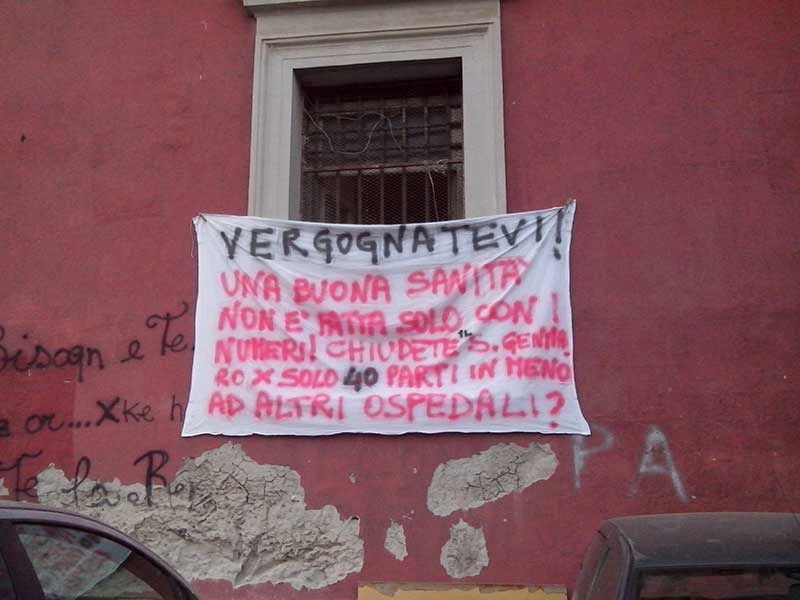 VERGOGNATEVI!
UNA BUONA SANITA'
NON E' FATTA SOLO CON I
NUMERI! CHIUDETE IL S. GENNA
RO X SOLO 40 PARTI IN MENO
AD ALTRI OSPEDALI?
Bisogn e Te.
or....Xke h
Te la Re
PA